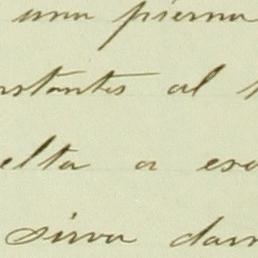 una pierna
nstantes al
elta a esa
sirva dar